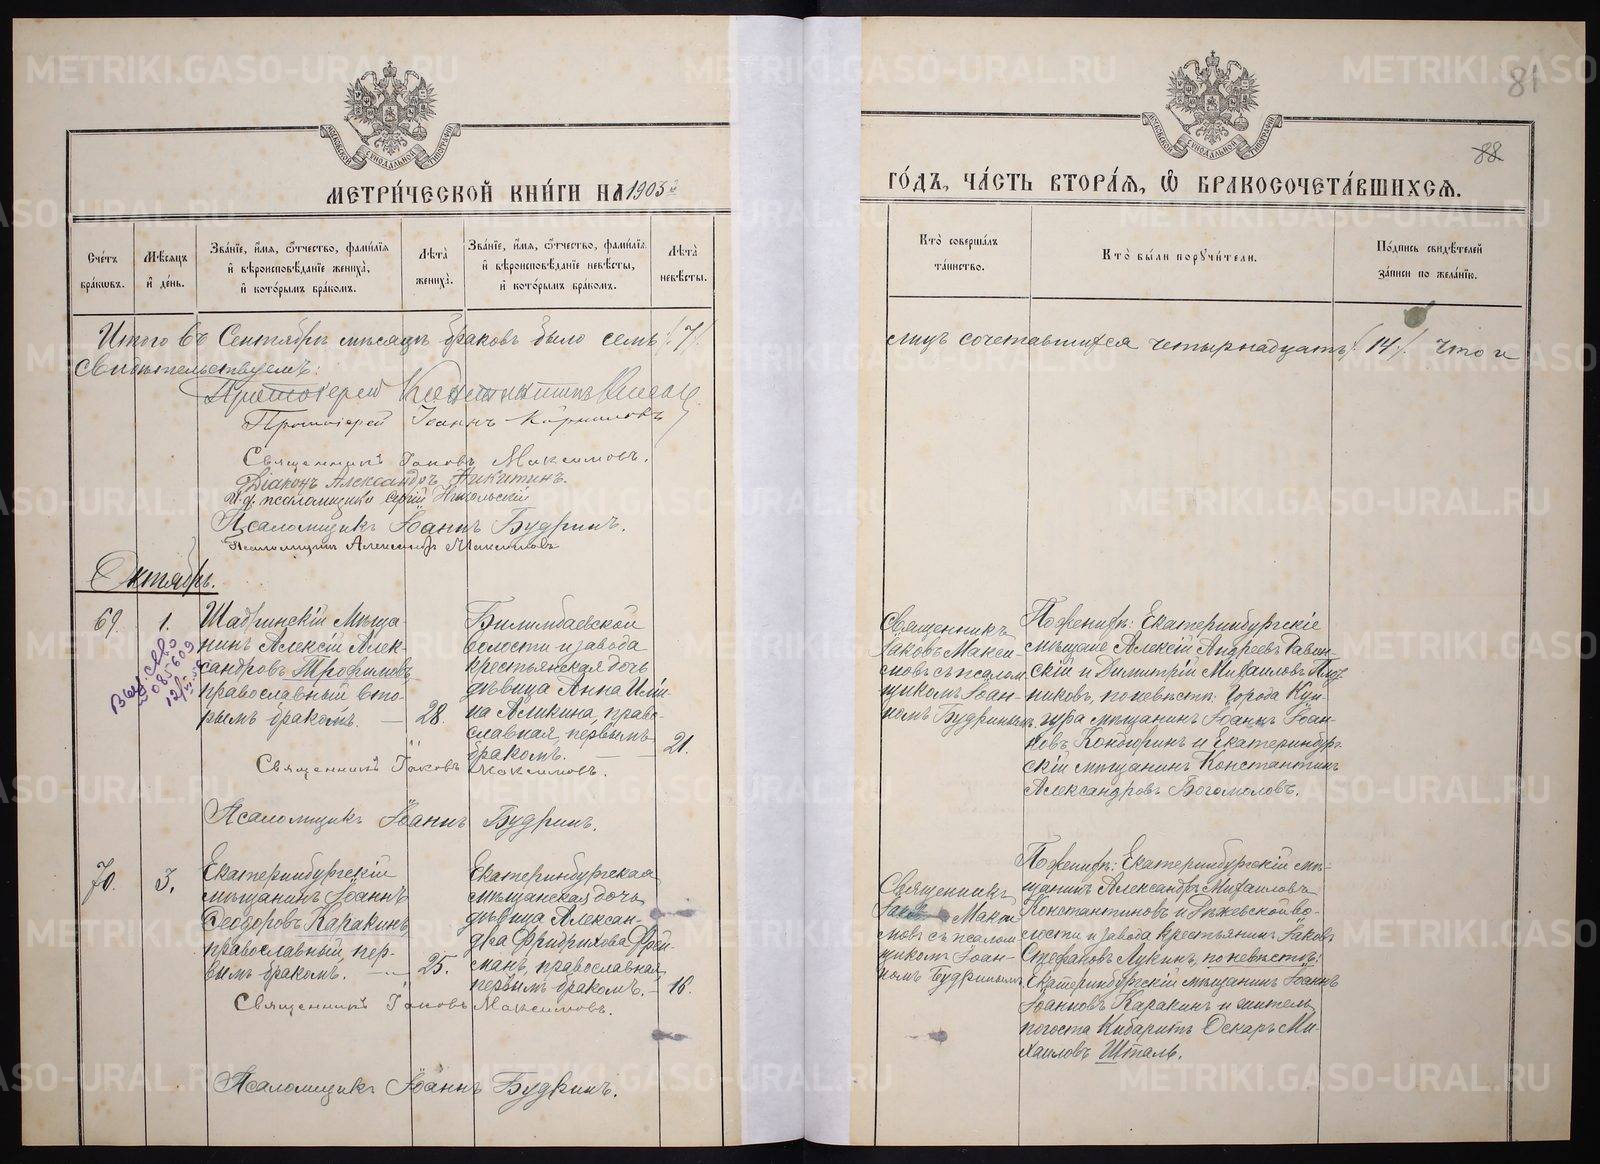 МЕТРИ́ЧЕСКОЙ КНИ́ГИ НА 1903й
ГО́ДЪ, ЧА́СТЬ ВТОРА́Я, Ѡ БРАКОСОЧЕТА́ВШИХСЯ.
81
88
Сче́тъ бра́ковъ.
Мѣ́сяцъ и де́нь.
Зва́нїе, и́мя, ѻ҆́тчество, фами́лїя и вѣроисповѣ́данїе жениха̀, и кото́рымъ бра́комъ.
Лѣ́та жениха̀.
Зва́нїе, и́мя, ѻ҆́тчество, фами́лїя и вѣроисповѣ́данїе невѣ́сты, и кото́рымъ бра́комъ.
Лѣ́та невѣ́сты.
Кто̀ соверша́лъ та́инство.
Кто̀ бы́ли поручи́тели.
По́дпись свидѣ́телей за́писи по жела́нїю.
Итого въ Сентябрѣ мѣсяцѣ браковъ было семь /7/
лицъ сочетавшихся четырнадцать /14/. Что и
свидѣтельствуемъ:
Протоіерей
Протоіерей Іоаннъ Корнилов
Священникъ Іаковъ Максимовъ.
Діаконъ Александръ Никитинъ.
И. д. псаломщика Сергій Никольскій
Псаломщикъ Іоаннъ Будринъ.
Псаломщикъ Александръ Максимовъ
Октябрь.
69.
1.
Шадринскій Мѣща-
нинъ Алексій Алек-
сандровъ Трофимовъ
православный вто-
рымъ бракомъ. —
28.
Билимбаевской
волости и завода
крестьянская дочь
дѣвица Анна Илі-
на Аликина, право-
славная, первымъ
бракомъ. —
21.
085609
Священникъ
Іаковъ Макси-
мовъ съ псалом-
щикомъ Іоан-
номъ Будринымъ.
По женихѣ: Екатеринбургскіе
мѣщане Алексій Андреевъ
скій и Димитрій Михаиловъ
никовъ, по невѣстѣ: Города Кун-
гура мѣщанинъ Іоаннъ Іоан-
новъ Кондюринъ и Екатеринбург-
скій мѣщанинъ Константинъ
Александровъ Богомоловъ.
Священникъ Іаковъ Максимовъ.
Псаломщикъ Іоаннъ Будринъ.
70.
3.
Екатеринбургскій
мѣщанинъ Іоаннъ
Ѳеодоровъ Каракинъ,
православный, пер-
вымъ бракомъ. —
25.
Екатеринбургская
мѣщанская дочь
дѣвица Алексан-
дра Фридрихова Фрей-
манъ, православная,
первымъ бракомъ. —
16.
Священникъ
Іаковъ Макси-
мовъ съ псалом-
щикомъ Іоан-
номъ Будринымъ
По женихѣ: Екатеринбургскій мѣ-
щанинъ Александръ Михаиловъ
Константиновъ и Режевской во-
лости и завода крестьянинъ Іаковъ
Стефановъ Лукинъ, по невѣстѣ:
Екатеринбургскій мѣщанинъ Іоаннъ
Іоанновъ Каракинъ и житель
погоста Кибаритъ Оскаръ Ми-
хаиловъ Шталь.
Священникъ Іаковъ Максимовъ.
Псаломщикъ Іоаннъ Будринъ.
METRIKI.GASO-URAL.RU